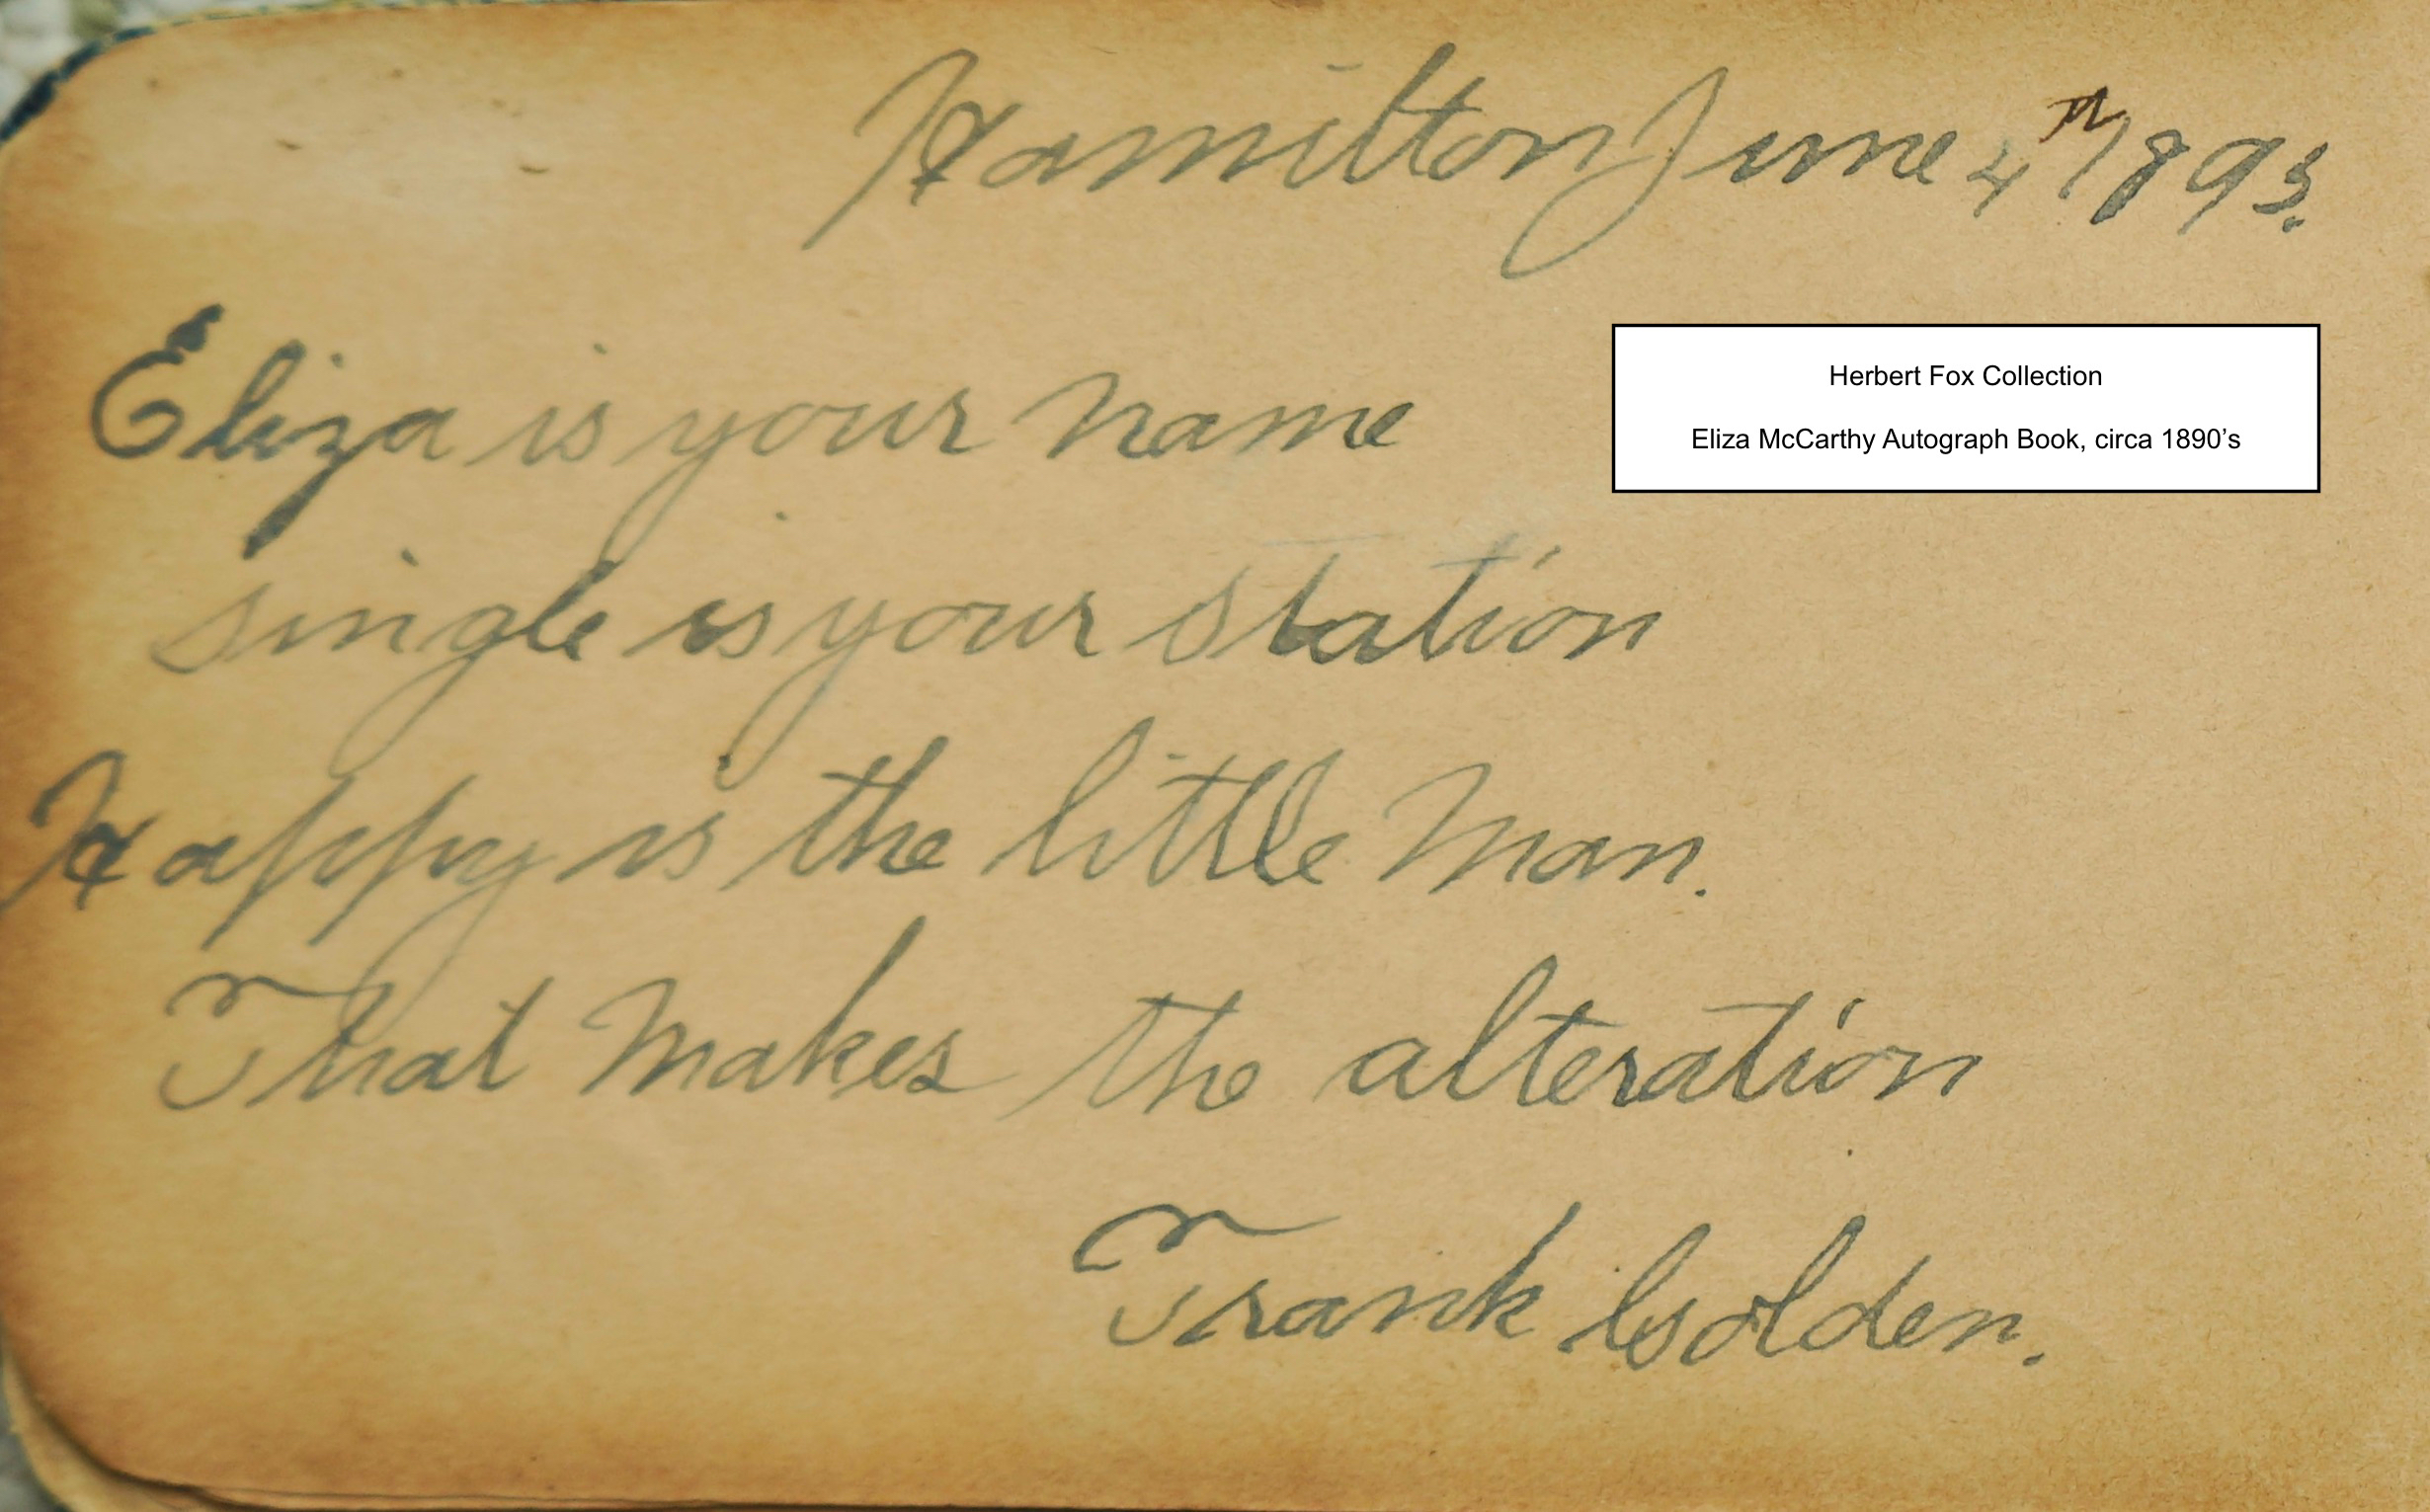 Hamilton June 4th 1893.
Herbert Fox Collection
Eliza McCarthy Autograph Book, circa 1890’s
Eliza is your name
single is your station
Happy is the little man.
That makes the alteration
Frank Golden.